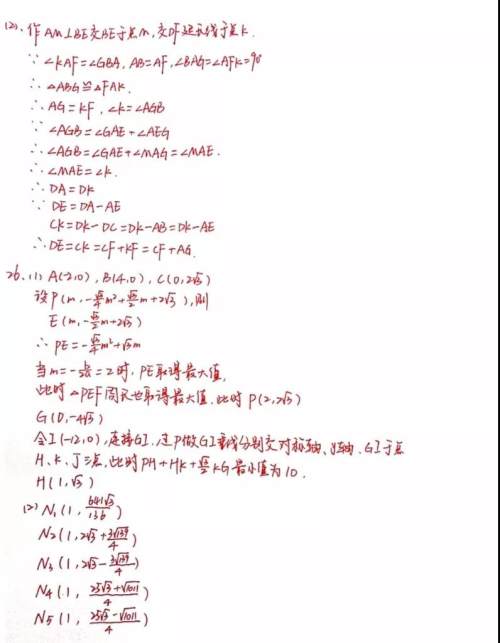 (2). 作AM⊥BE交BE于点M,交DF延长线于点K.
∵ ∠KAF=∠GBA, AB=AF, ∠BAG=∠AFK=90°
∴ △ABG≌△FAK.
∴ AG=KF, ∠K=∠AGB
∵ ∠AGB=∠GAE+∠AEG
∴ ∠AGB=∠GAE+∠MAG=∠MAE.
∴ ∠MAE=∠K.
∴ DA=DK
∵ DE=DA-AE
CK=DK-DC=DK-AB=DK-AE
∴ DE=CK=CF+KF=CF+AG.
26. (1) A(-2,0), B(4,0), C(0,2√3)
设P(m, -√3/4m²+√3/2m+2√3),则
E(m,-√3/2m+2√3)
∴ PE=-√3/4m²+√3m
当m=-b/2a=2时,PE取得最大值,
此时△PEF周长也取得最大值.此时P(2,2√3)
G(0,-4√3)
令I(-12,0),连接GI,过P做GI垂线分别交对称轴、y轴、GI于点
H、K、J三点,此时PH+HK+√3/2KG最小值为10.
H(1,√3)
(2) N₁(1, 641√3/136)
N₂(1, 2√3+3√139/4)
N₃(1, 2√3-3√139/4)
N₄(1, 25√3+√1011/4)
N₅(1, 25√3-√1011/4)